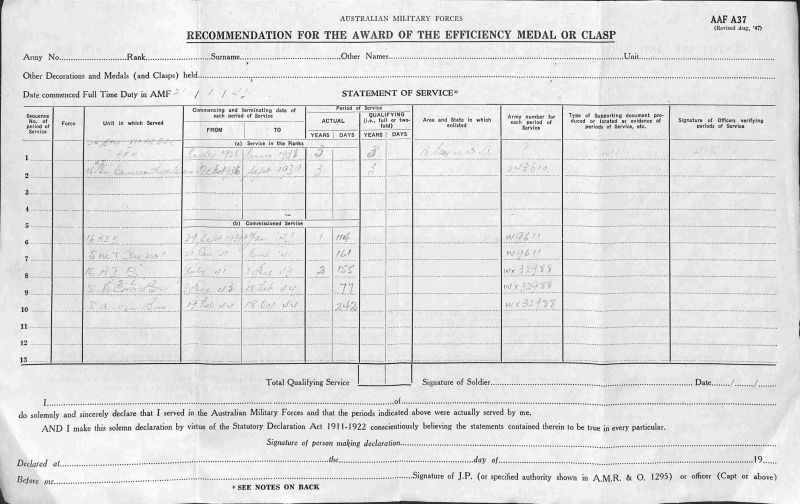 AUSTRALIAN MILITARY FORCES
AAF A37
(Revised Aug, '47)
RECOMMENDATION FOR THE AWARD OF THE EFFICIENCY MEDAL OR CLASP
Army No. Rank Surname Other Names Unit
Other Decorations and Medals (and Clasps) held
Date commenced Full Time Duty in AMF
STATEMENT OF SERVICE*
Sequence No. of period of Service
Force
Unit in which Served
Commencing and terminating date of each period of Service
FROM TO
Period of Service
ACTUAL
YEARS DAYS
QUALIFYING (i.e., full or two-fold)
YEARS DAYS
Area and State in which enlisted
Army number for each period of Service
Type of Supporting document produced or located as evidence of periods of Service, etc.
Signature of Officers verifying periods of Service
(a) Service in the Ranks
1 1935 1936 3 3 16 ?
2 Sept 1939 3 3
3
4
5 (b) Commissioned Service
6 Sept 1 114 W9611
7 Depot 161 W9611
8 July 41 2 Dec 43 2 155 WX32988
9 Dec 43 18 Feb 44 77 WX32988
10 19 Feb 44 18 Oct 44 242 WX32988
11
12
13
Total Qualifying Service
Signature of Soldier Date / /
I of
do solemnly and sincerely declare that I served in the Australian Military Forces and that the periods indicated above were actually served by me.
AND I make this solemn declaration by virtue of the Statutory Declaration Act 1911-1922 conscientiously believing the statements contained therein to be true in every particular.
Signature of person making declaration
Declared at the day of 19
Before me Signature of J.P. (or specified authority shown in A.M.R. & O. 1295) or officer (Capt or above)
* SEE NOTES ON BACK